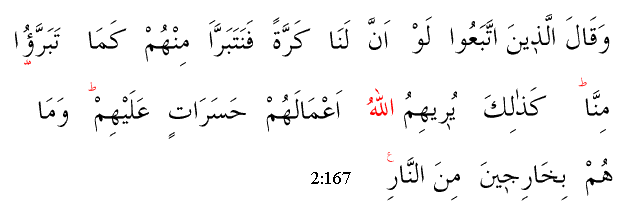 وَقَالَ الَّذ۪ينَ اتَّبَعُوا لَوْ اَنَّ لَنَا كَرَّةً فَنَتَبَرَّاَ مِنْهُمْ كَمَا تَبَرَّؤُ۫ا
مِنَّاۜ كَذٰلِكَ يُر۪يهِمُ اللّٰهُ اَعْمَالَهُمْ حَسَرَاتٍ عَلَيْهِمْۜ وَمَا
هُمْ بِخَارِج۪ينَ مِنَ النَّارِ۟ 2:167